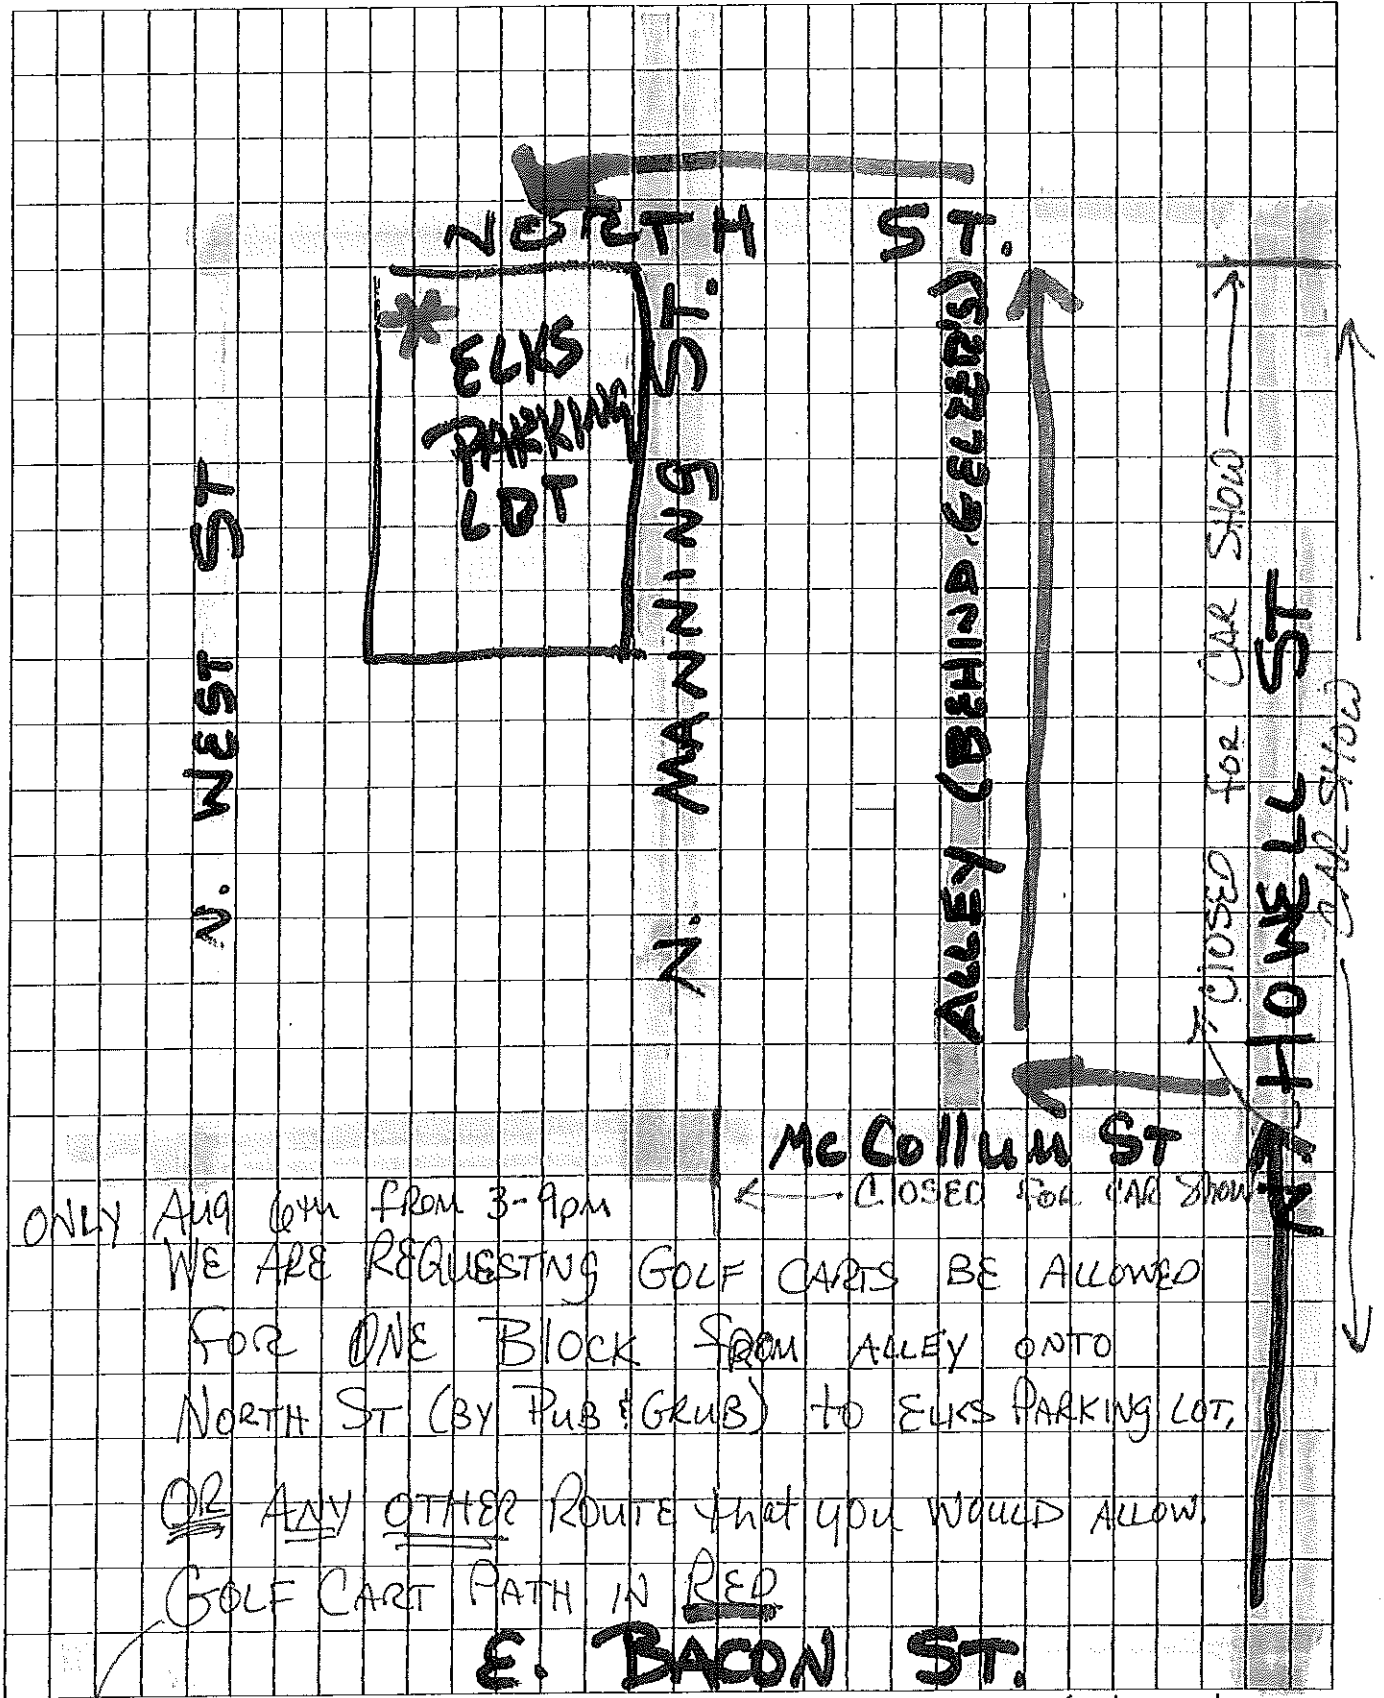 NORTH ST.
*
ELKS
PARKING
LOT
N. WEST ST
N. MANNING ST.
ALLEY (BEHIND GELZER'S)
CLOSED FOR CAR SHOW
N. HOWELL ST
CAR SHOW
McCollum ST
CLOSED FOR CAR SHOW
ONLY Aug 6th FROM 3-9pm
WE ARE REQUESTING GOLF CARTS BE ALLOWED
FOR ONE BLOCK FROM ALLEY ONTO
NORTH ST (BY PUB & GRUB) to ELKS PARKING LOT,
OR ANY OTHER ROUTE that you WOULD ALLOW.
GOLF CART PATH IN RED
E. BACON ST.